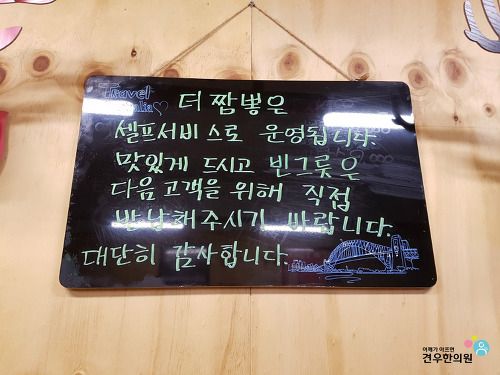 Travel
더 짬뽕은
셀프서비스로 운영됩니다.
맛있게 드시고 빈그릇은
다음고객을 위해 직접
반납해주시기 바랍니다.
대단히 감사합니다.
어깨가 아프면
견우한의원